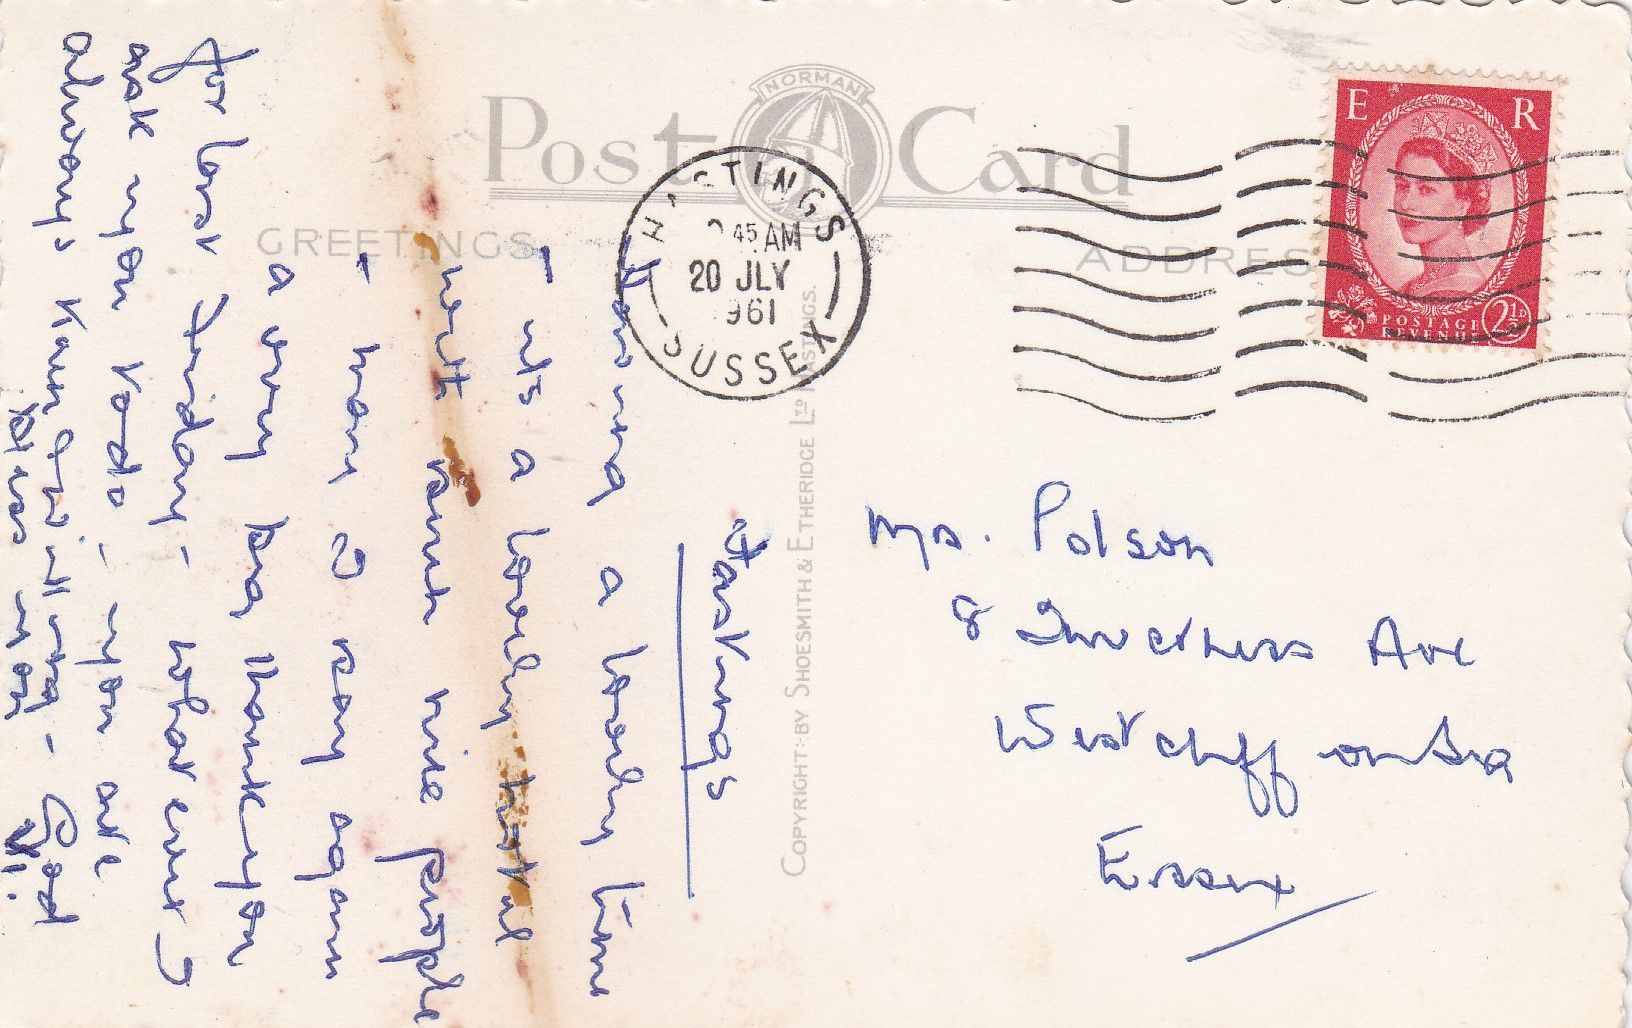 Post Card
NORMAN
GREETINGS
ADDRESS
HASTINGS
45 AM
20 JLY
961
SUSSEX
E R
POSTAGE
REVENUE
2½D
COPYRIGHT: BY SHOESMITH & ETHERIDGE LTD HASTINGS.
Hastings
Having a lovely time
- its a lovely hotel
with some nice people
- may I say again
a very big thankyou
for last Friday - whatever I
ask you to do - you are
always
willing - God
Bless you
Vi.
Mrs. Polson
8 Inverness Ave
Westcliff on Sea
Essex